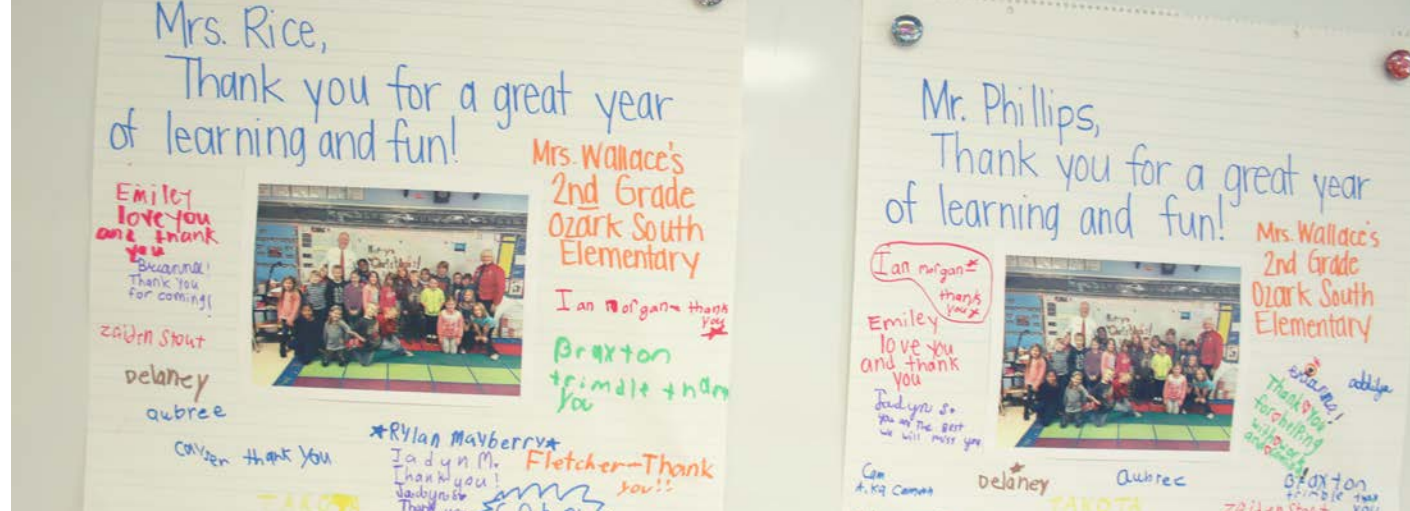 Mrs. Rice,
Thank you for a great year
of learning and fun!
Mrs. Wallace's
2nd Grade
Ozark South
Elementary
Emiley
love you
and thank
you
Brianna!
Thank you
for coming!
zaiden Stout
Delaney
aubree
thank you
Ian morgan thank
you
Braxton
trimble thank
you
Rylan mayberry
Jadyn M.
Thank you!
Jadyn S.
Thank you
Fletcher-Thank
you!!
TAKOTA
Mr. Phillips,
Thank you for a great year
of learning and fun!
Mrs. Wallace's
2nd Grade
Ozark South
Elementary
Ian morgan
thank
you
Emiley
love you
and thank
you
Jadyn S.
you are the best
we will miss you
Cam
Delaney
aubree
TAKOTA
Brianna!
Thank you
for helping
addilyn
Braxton
trimble thank
you
zaiden Stout